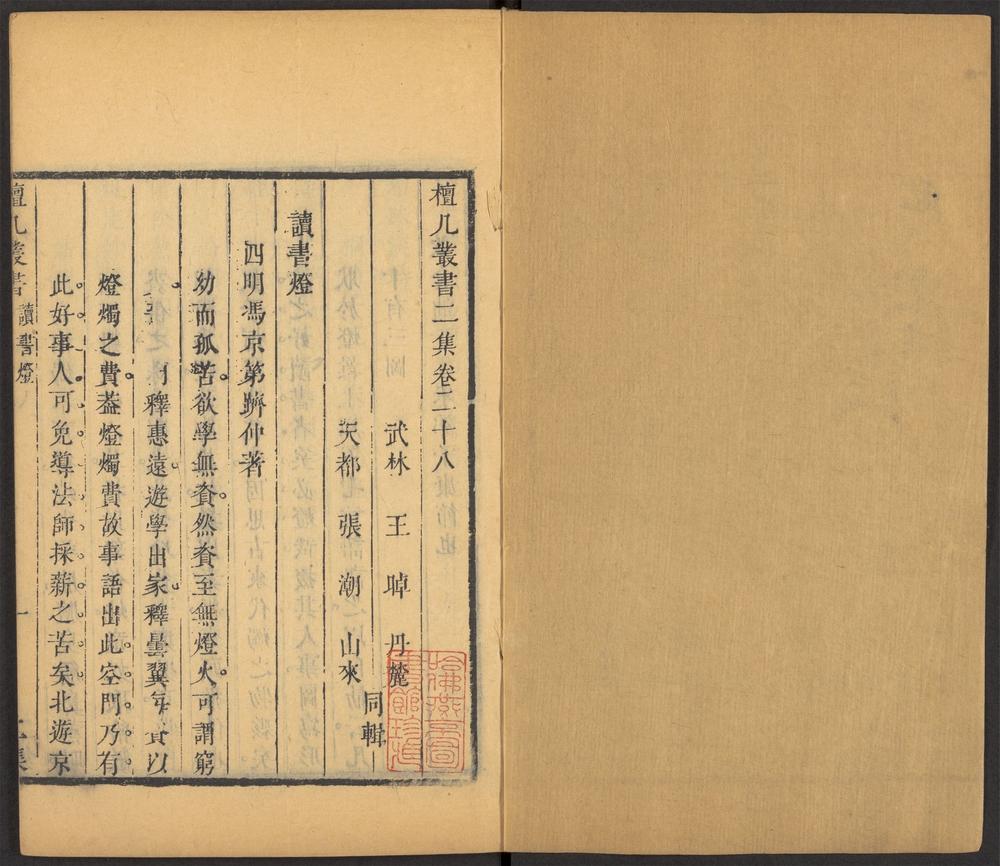 檀几叢書二集卷二十八
武林 王 晫 丹麓
天都 張 潮 山來
同輯
讀書燈
四明馮京第躋仲著
幼而孤苦欲學無資然資至無燈火可謂窮
釋惠遠遊學出家釋曇翼年資以
燈燭之費葢燈燭費故事語出此空門乃有
此好事人可免導法師採薪之苦矣北遊京
檀几叢書 讀書燈 一 二集
哈佛燕京圖書館珍藏